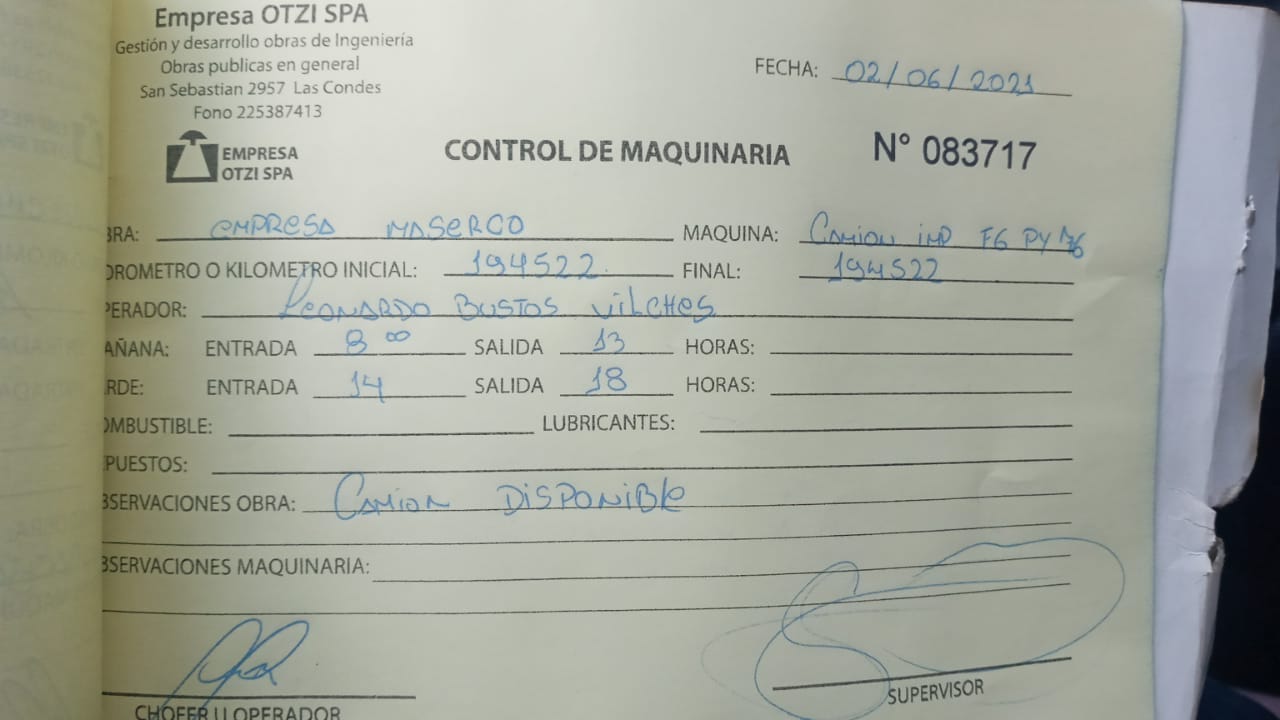 Empresa OTZI SPA
Gestión y desarrollo obras de Ingeniería
Obras publicas en general
San Sebastian 2957 Las Condes
Fono 225387413
FECHA: 02/06/2021
EMPRESA
OTZI SPA
CONTROL DE MAQUINARIA
N° 083717
BRA: EMPRESA MASERCO MAQUINA: CAMION
OROMETRO O KILOMETRO INICIAL: 194522 FINAL: 194522
PERADOR: LEONARDO BUSTOS VILCHES
AÑANA: ENTRADA 8 00 SALIDA 13 HORAS:
RDE: ENTRADA 14 SALIDA 18 HORAS:
OMBUSTIBLE: LUBRICANTES:
PUESTOS:
BSERVACIONES OBRA: CAMION DISPONIBLE
BSERVACIONES MAQUINARIA:
CHOFER U OPERADOR
SUPERVISOR